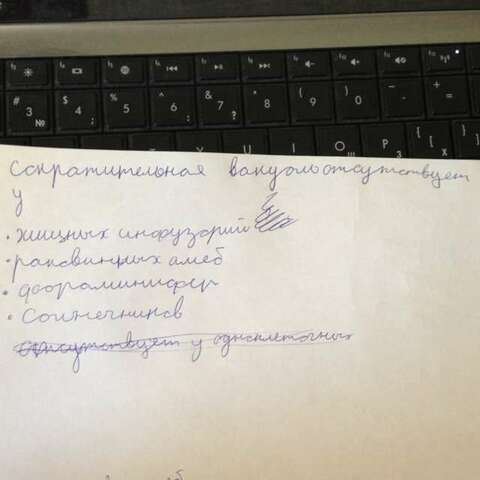 f3 f4 f5 f6 f7 f8 f9 f10 f11 f12
# 3 № $ 4 ; % 5 ^ 6 : & 7 ? * 8 ( 9 ) 0 - + =
Y U I O P { [ } ]
Сократительная вакуоль отсутствует
у
· хищных инфузорий
· раковинных амеб
· фораминифер
· Солнечников
отсутствует у одноклеточных